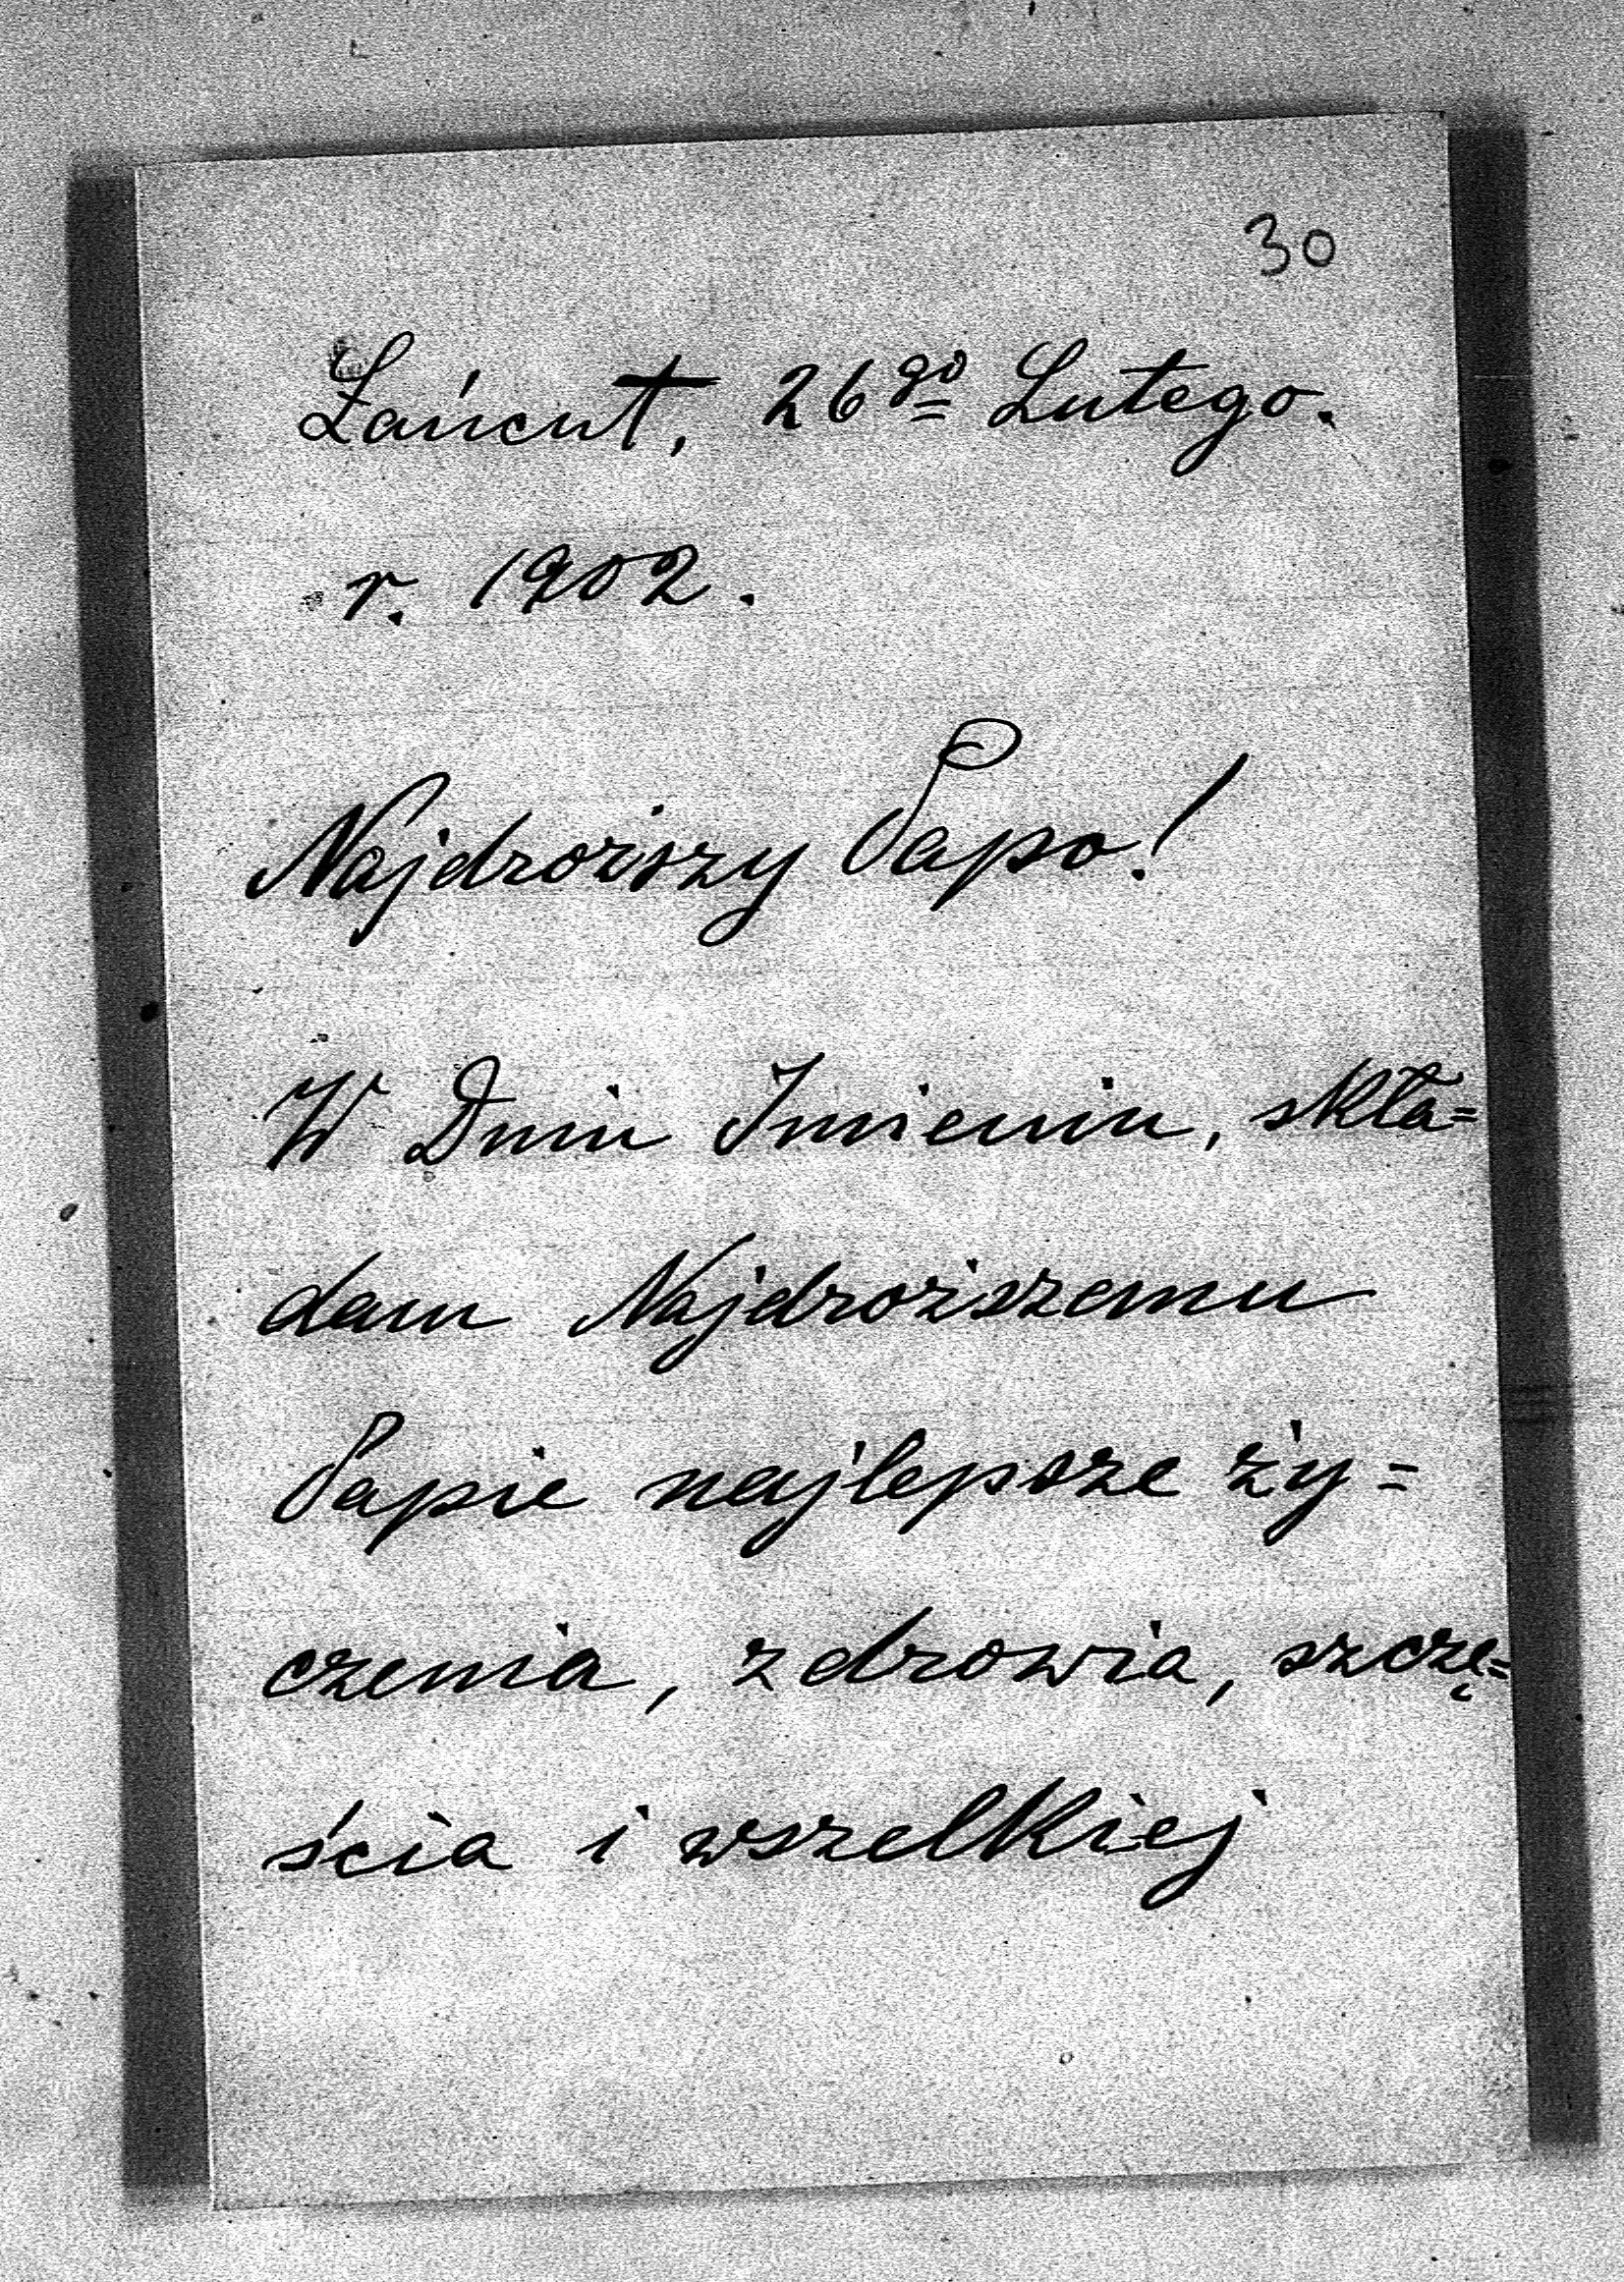 30
Łańcut, 26go Lutego.
r. 1902.
Najdroższy Papo!
W Dniu Imieniu, skła=
dam Najdroższemu
Papie najlepsze ży=
czenia, zdrowia, szczę=
ścia i wszelkiej